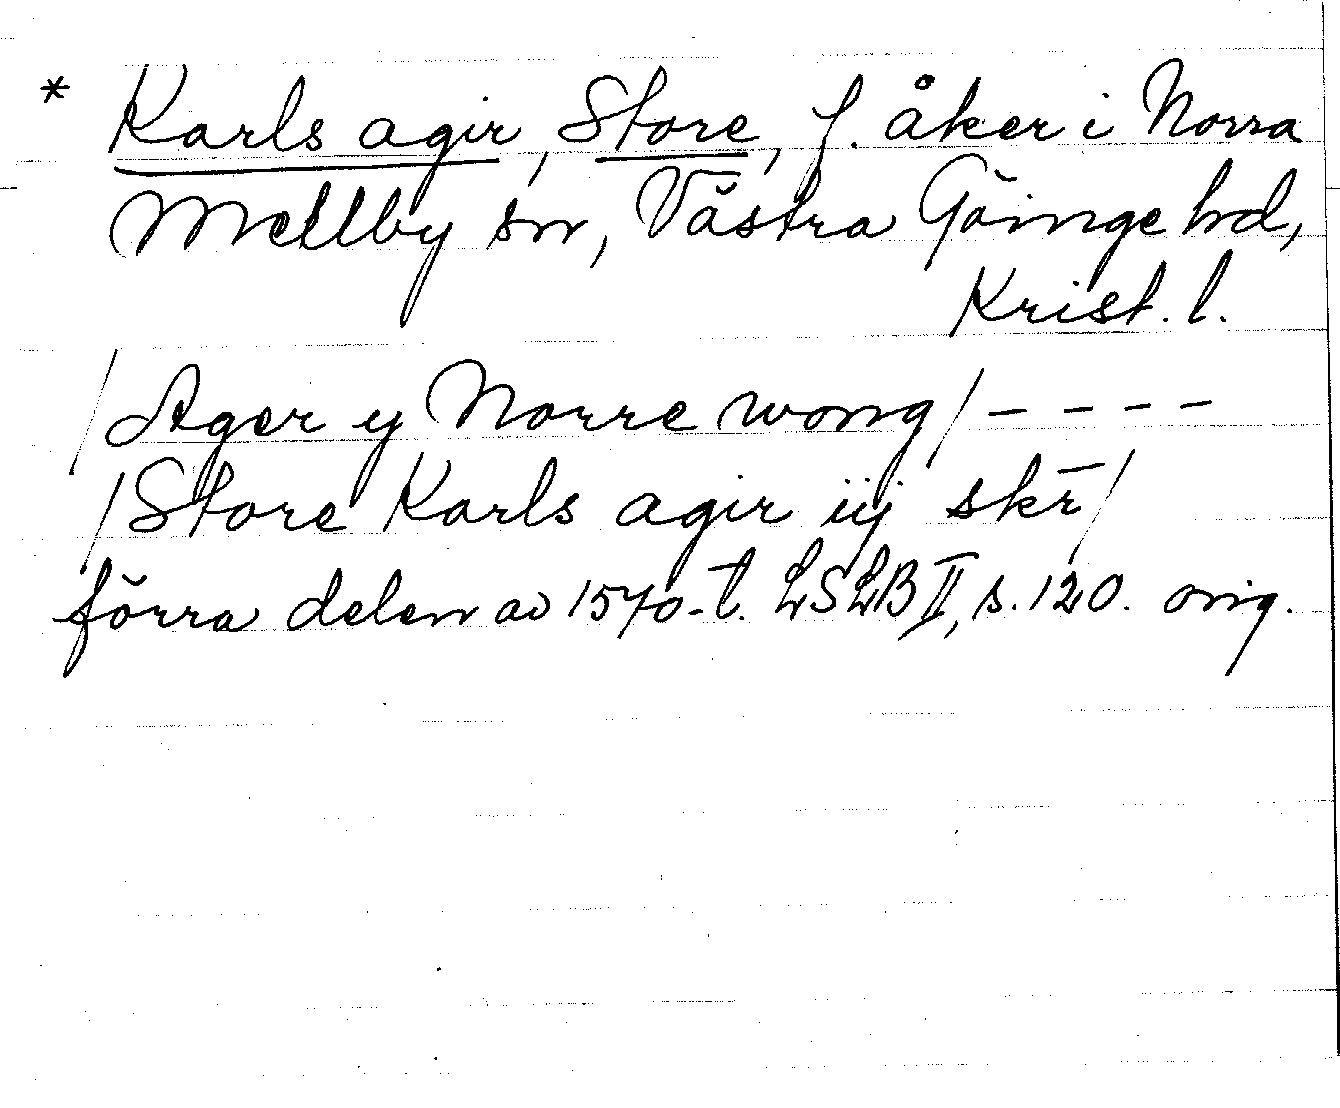 * Karls agir, Store, f. åker i Norra
Mellby sn, Västra Göinge hd,
Krist. l.
/Ager y Norre wong/ – – – –
/Store Karls agir iij skr̄/
förra delen av 1570-t. LSLB II, s. 120. orig.